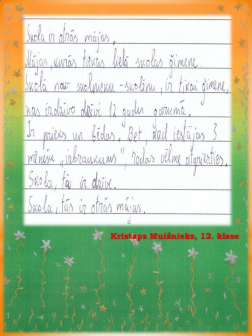 Skola ir otrās mājas.
Mājas, kurās tēkas lielā skolas ģimene.
Skolā nav skolnieku - skolēnu, ir tikai ģimene,
kas izdzīvo dzīvi 12 gadu garumā.
Ir prieks un bēdas. Bet, kad iestājas 3
mēnešu "izbraukums", rodas vēlme atgriezties.
Skola, tā ir dzīve.
Skola, tās ir otrās mājas.
Kristaps Muižnieks, 12. klase